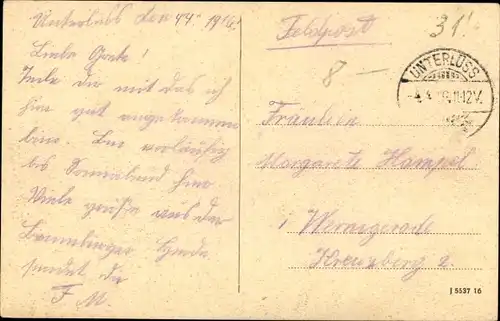 Unterlüss den 4.4. 1916!
Liebe Grete!
Teile dir mit das ich
hier gut angekommen
bin. Bin vorläufig
bis Sonnabend hier
Viele grüße aus der
Lüneburger Heide
sendet dir
F. M.
Feldpost
31!
8 —
UNTERLÜSS
11-12V.
Fräulein
Margarete Hampel
i Wernigerode
Kreuzberg 2.
J 5537 16